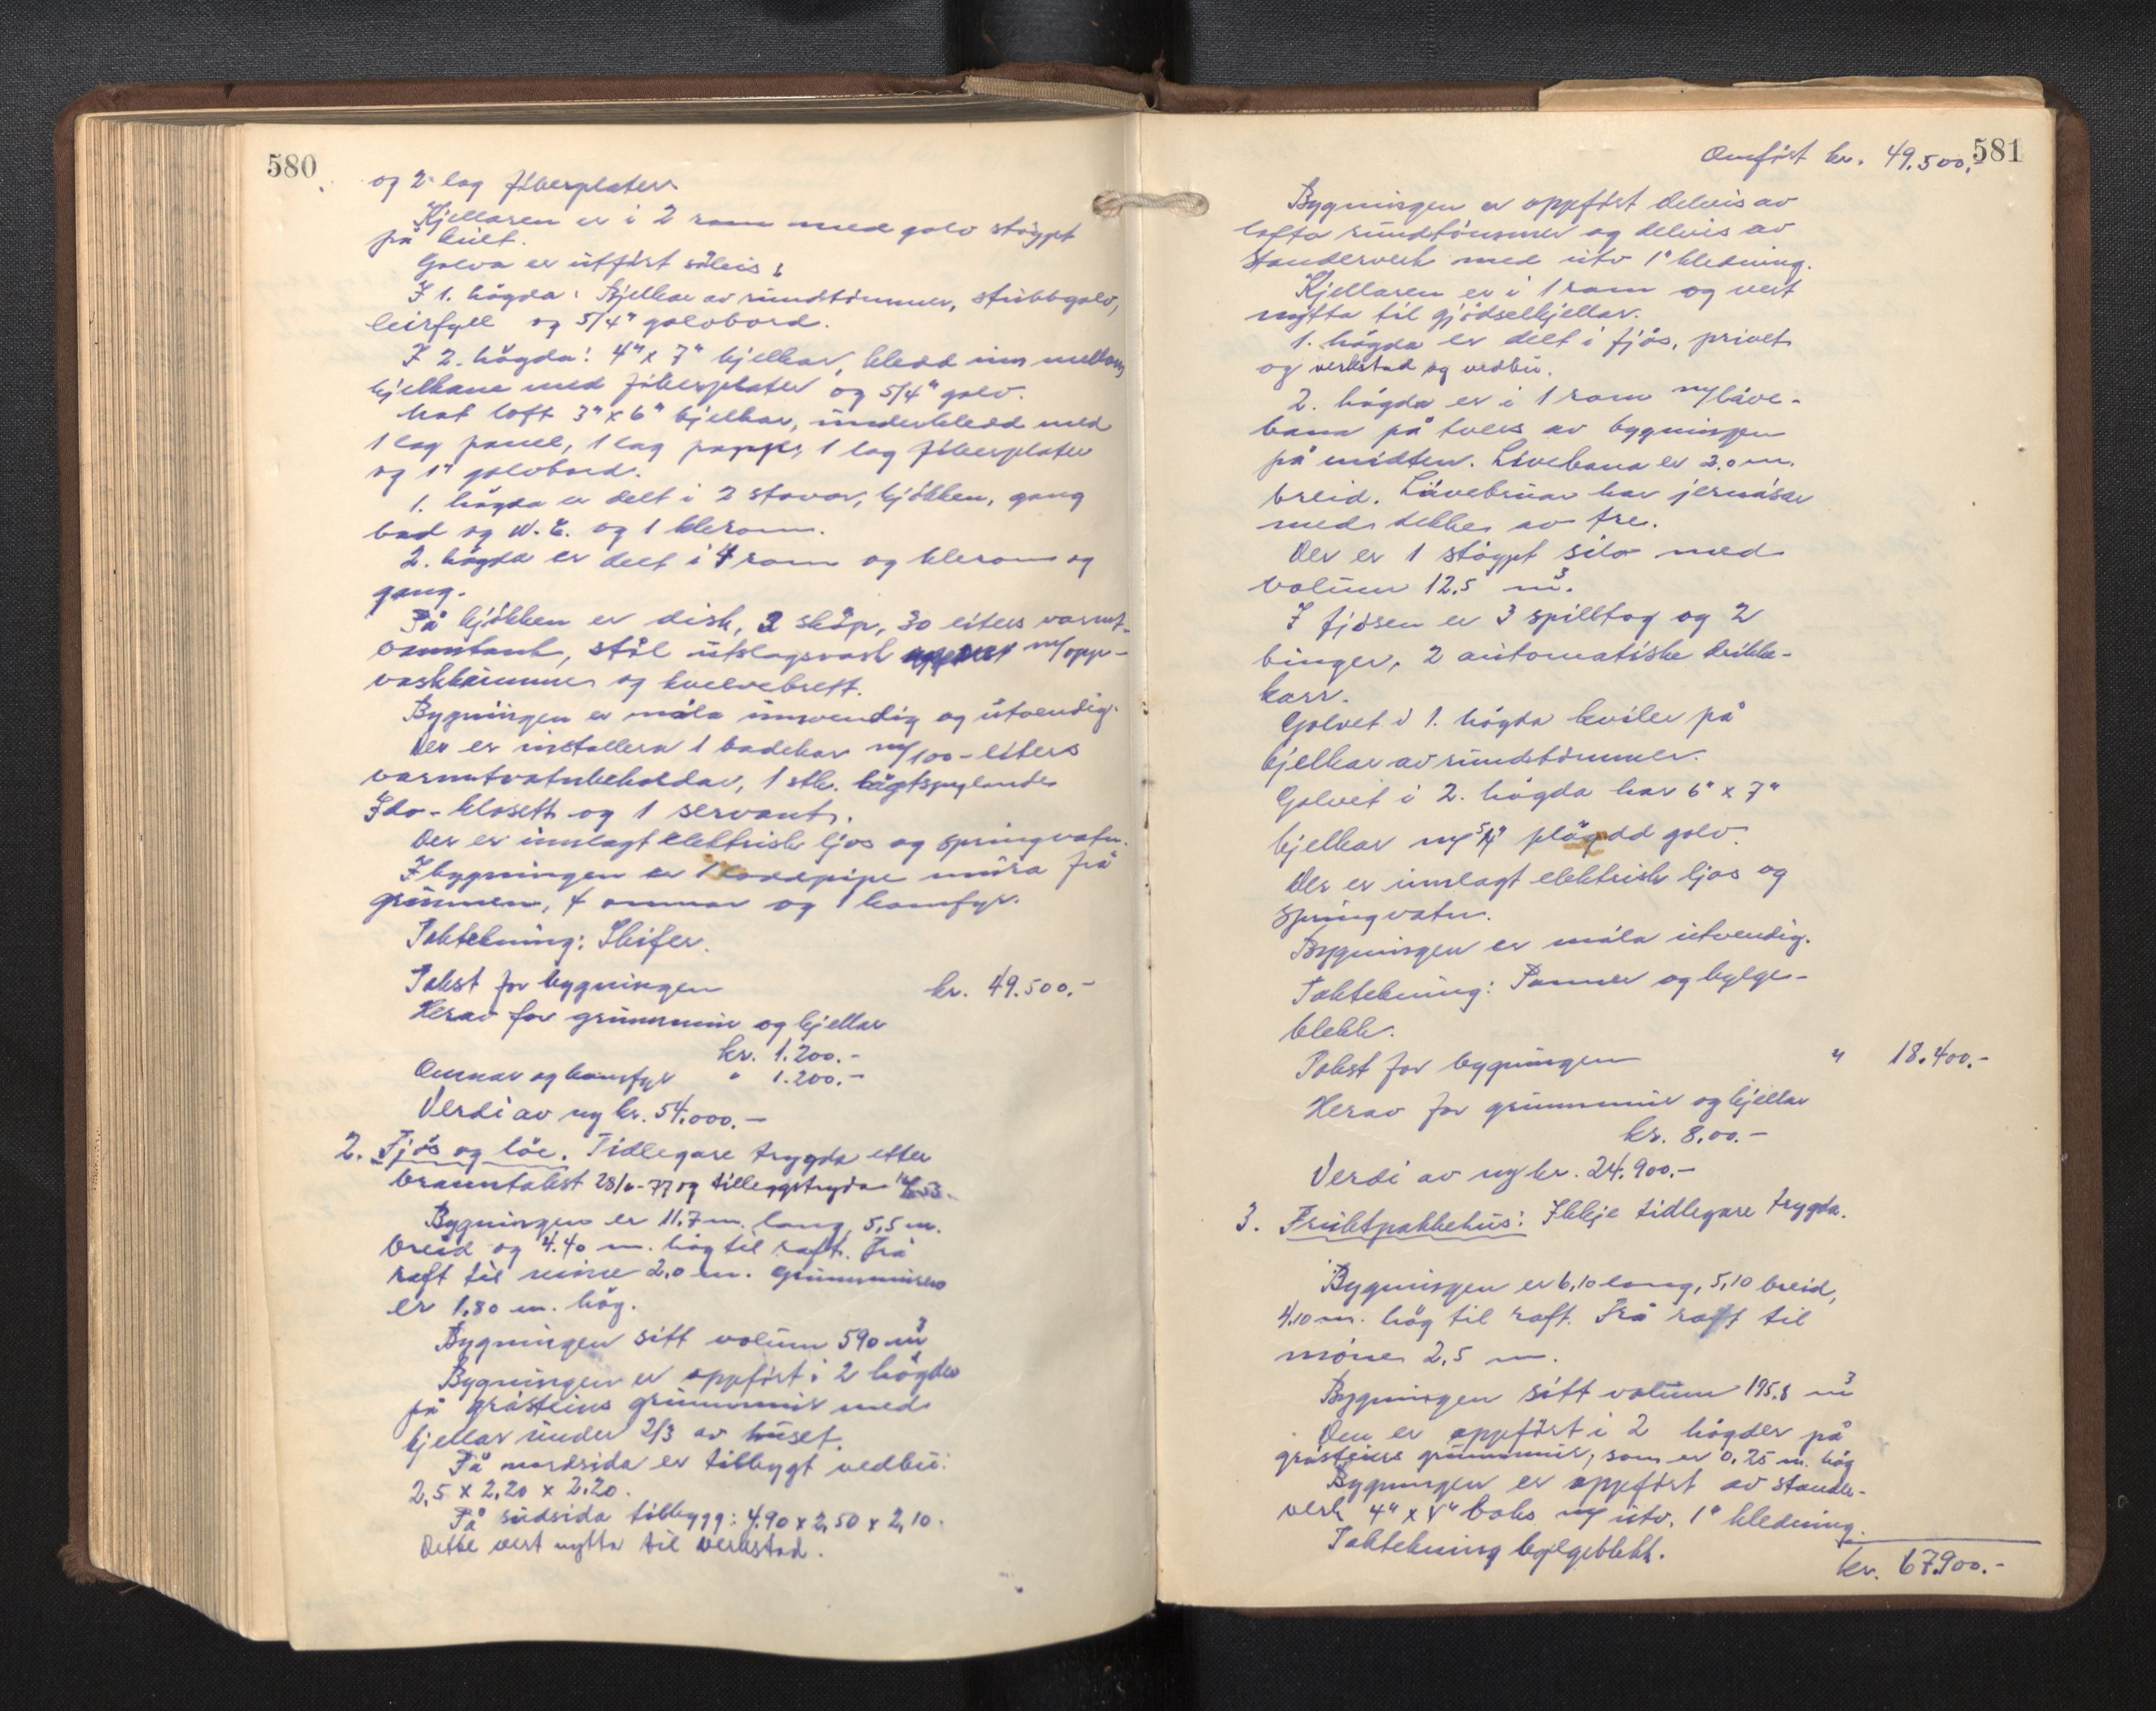 580
og 2 lag fiberplater
Kjellaren er i 2 rom med golv støypt
på kult.
Golva er utført såleis:
I 1. høgda: Bjelkar av rundtømmer, stubbgolv,
leirfyll og 5/4" golvbord.
I 2. høgda: 4" x 7" bjelkar, kledd inn mellom
bjelkane med fiberplater og 5/4" golv.
Mot loft 3" x 6" bjelkar, underkledd med
1 lag panel, 1 lag papp, 1 lag fiberplater
og 1" golvbord.
1. høgda er delt i 2 stovor, kjøkken, gang
bad og W.C. og 1 klerom.
2. høgda er delt i 4 rom og klerom og
gang.
På kjøkken er disk, 3 skåp, 30 liters varmt-
vanntank, stål utslagsvask m/opp-
vaskkummer og kvelvebrett.
Bygningen er måla innvendig og utvendig.
Der er installera 1 badekar m/100-liters
varmtvatnbeholdar, 1 stk. lågtspylande
Ido-klosett og 1 servant.
Der er innlagt elektrisk ljos og springvatn.
I bygningen er 1 loddpipe mura frå
grunnen, 4 omnar og 1 komfyr.
Taktekning: Skifer.
Takst for bygningen kr. 49.500.-
Herav for grunnmur og kjellar
kr. 1.200.-
Omnar og komfyr " 1.200.-
Verdi av ny kr. 54.000.-
2. Fjøs og løe. Tidlegare trygda etter
branntakst 28/6-77 og tilleggstrygda
Bygningen er 11,7 m. lang, 5,5 m.
breid og 4.40 m. høg til raft. Frå
raft til møne 2,0 m. Grunnmuren
er 1,80 m. høg.
Bygningen sitt volum 590 m³
Bygningen er oppført i 2 høgder
på gråsteins grunnmur med
kjellar under 2/3 av huset.
På nordsida er tilbygt vedbu:
2,5 x 2,20 x 2.20.
På sudsida tilbygg: 4.90 x 2,50 x 2,10.
Dette vert nytta til verkstad.
581
Omført kr. 49.500,-
Bygningen er oppført delvis av
lafta rundtømmer og delvis av
standerverk med utv 1" kledning.
Kjellaren er i 1 rom og vert
nytta til gjødselkjellar.
1. høgda er delt i fjøs, privet
og verkstad og vedbu.
2. høgda er i 1 rom m/låve-
bana på tvers av bygningen
på midten. Låvebana er 3.0 m.
breid. Låvebruar har jernåsar
med dekke av tre.
Der er 1 støypt silo med
volum 12.5 m³.
I fjøsen er 3 spilltog og 2
binger, 2 automatiske drikke-
karr.
Golvet i 1. høgda kviler på
bjelkar av rundtømmer.
Golvet i 2. høgda har 6" x 7"
bjelkar m/ 5/4" pløgdd golv.
Der er innlagt elektrisk ljos og
springvatn.
Bygningen er måla utvendig.
Taktekning: Panner og bylge-
blekk.
Takst for bygningen " 18.400.-
Herav for grunnmur og kjellar
kr. 8,00.-
Verdi av ny kr. 24.900.-
3. Fruktpakkehus: Ikkje tidlegare trygda.
Bygningen er 6,10 lang, 5,10 breid,
4.10 m. høg til raft. Frå raft til
møne 2,5 m.
Bygningen sitt volum 195.8 m³
Den er oppført i 2 høgder på
gråsteins grunnmur, som er 0.25 m. høg
Bygningen er oppført av stander-
verk 4" x 4" boks m/ utv. 1" kledning.
Taktekning bylgeblekk.
kr. 67.900.-